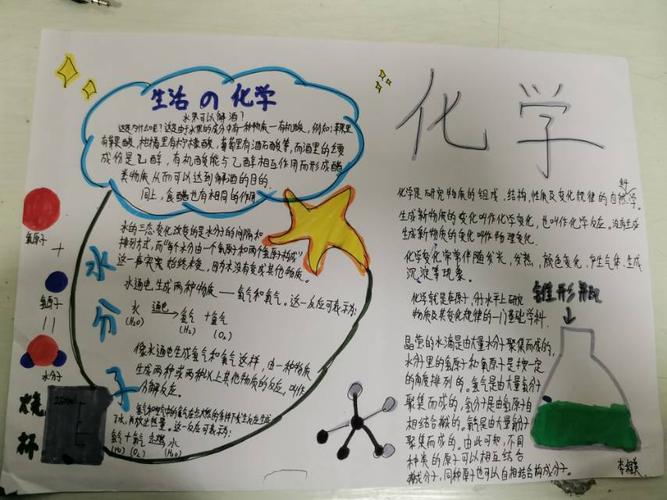 生活の化学
水果可以解酒?
这是为什么呢?这是由于水果的成分中有一种物质一有机酸,例如:苹果里
有苹果酸,柑橘里有柠檬酸,葡萄里有酒石酸等,而酒里的主要
成份是乙醇,有机酸能与乙醇相互作用而形成酯
类物质从而可以达到解酒的目的.
同上,食醋也有相同的作用
氧原子
+
氢原子
=
水分子
烧杯
水分子
水的三态变化改变的是水分子的间隔和
排列方式,而"每个水分由一个氧原子和两个氢原子构成"
这一事实 始终未变,因为水没有变成其他物质.
水通电生成两种物质——氢气和氧气。这一反应可表示为:
水 通电→ 氢气 + 氧气
(H₂O) (H₂) (O₂)
像水通电生成氢气和氧气这样,由一种物质
生成两种或两种以上其他物质的反应,叫作
分解反应.
氢气和空气中的氧气在点燃的条件下发生反应生成
了水,并放出热量。这一反应可表示为:
氢气 + 氧气 点燃→ 水
(H₂) (O₂) (H₂O)
化学
化学是研究物质的组成,结构,性质及变化规律的自然科学.
生成新物质的变化叫作化学变化,也叫作化学反应。没有生成
生成新物质的变化叫作物理变化.
化学变化常常伴随发光,放热,颜色变化,产生气体,生成
沉淀等现象.
化学就是在原子,分子水平上研究
物质及其变化规律的一门基础学科.
锥形瓶
晶莹的水滴是由大量水分子聚集而成的,
水分子里的氢原子和氧原子是按一定
的角度排列的。氢气是由大量氢分子
聚集而成的,氢分子是由氢原子自
相结合形成的。氧气是由大量氧分子
聚集而成的。由此可知,不同
种类的原子可以相互结合
构成分子,同种原子也可以自相结合构成分子.